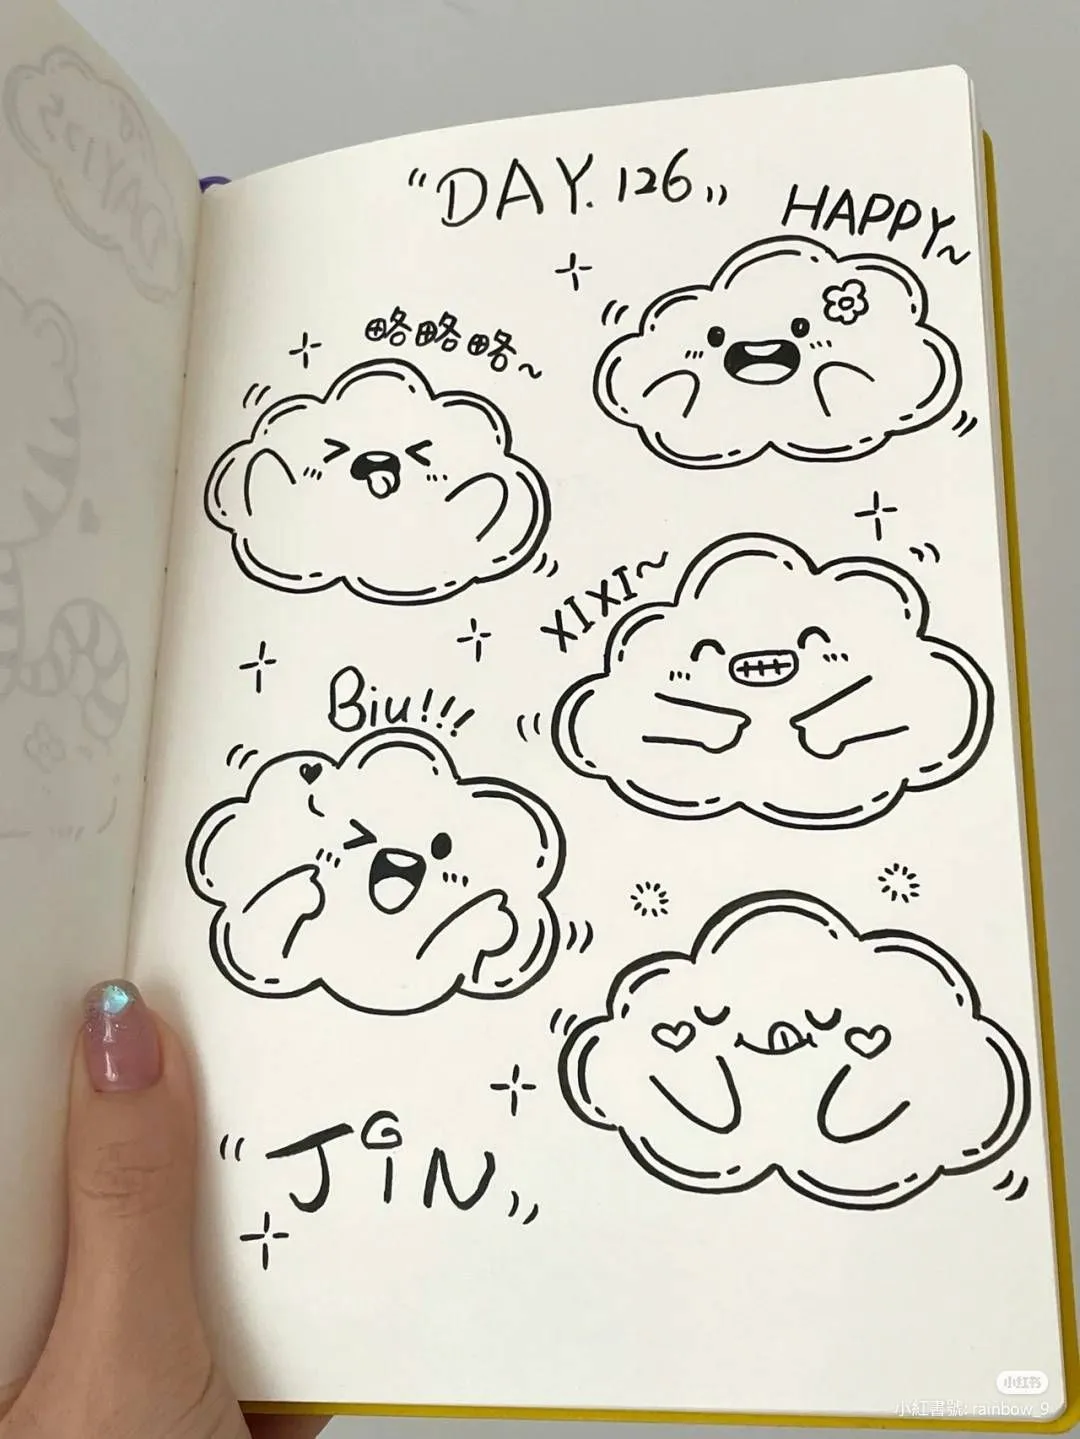 "DAY.126"
HAPPY~
略略略~
XIXI~
Biu!!!
"JiN"
小红书
小紅書號: rainbow_9